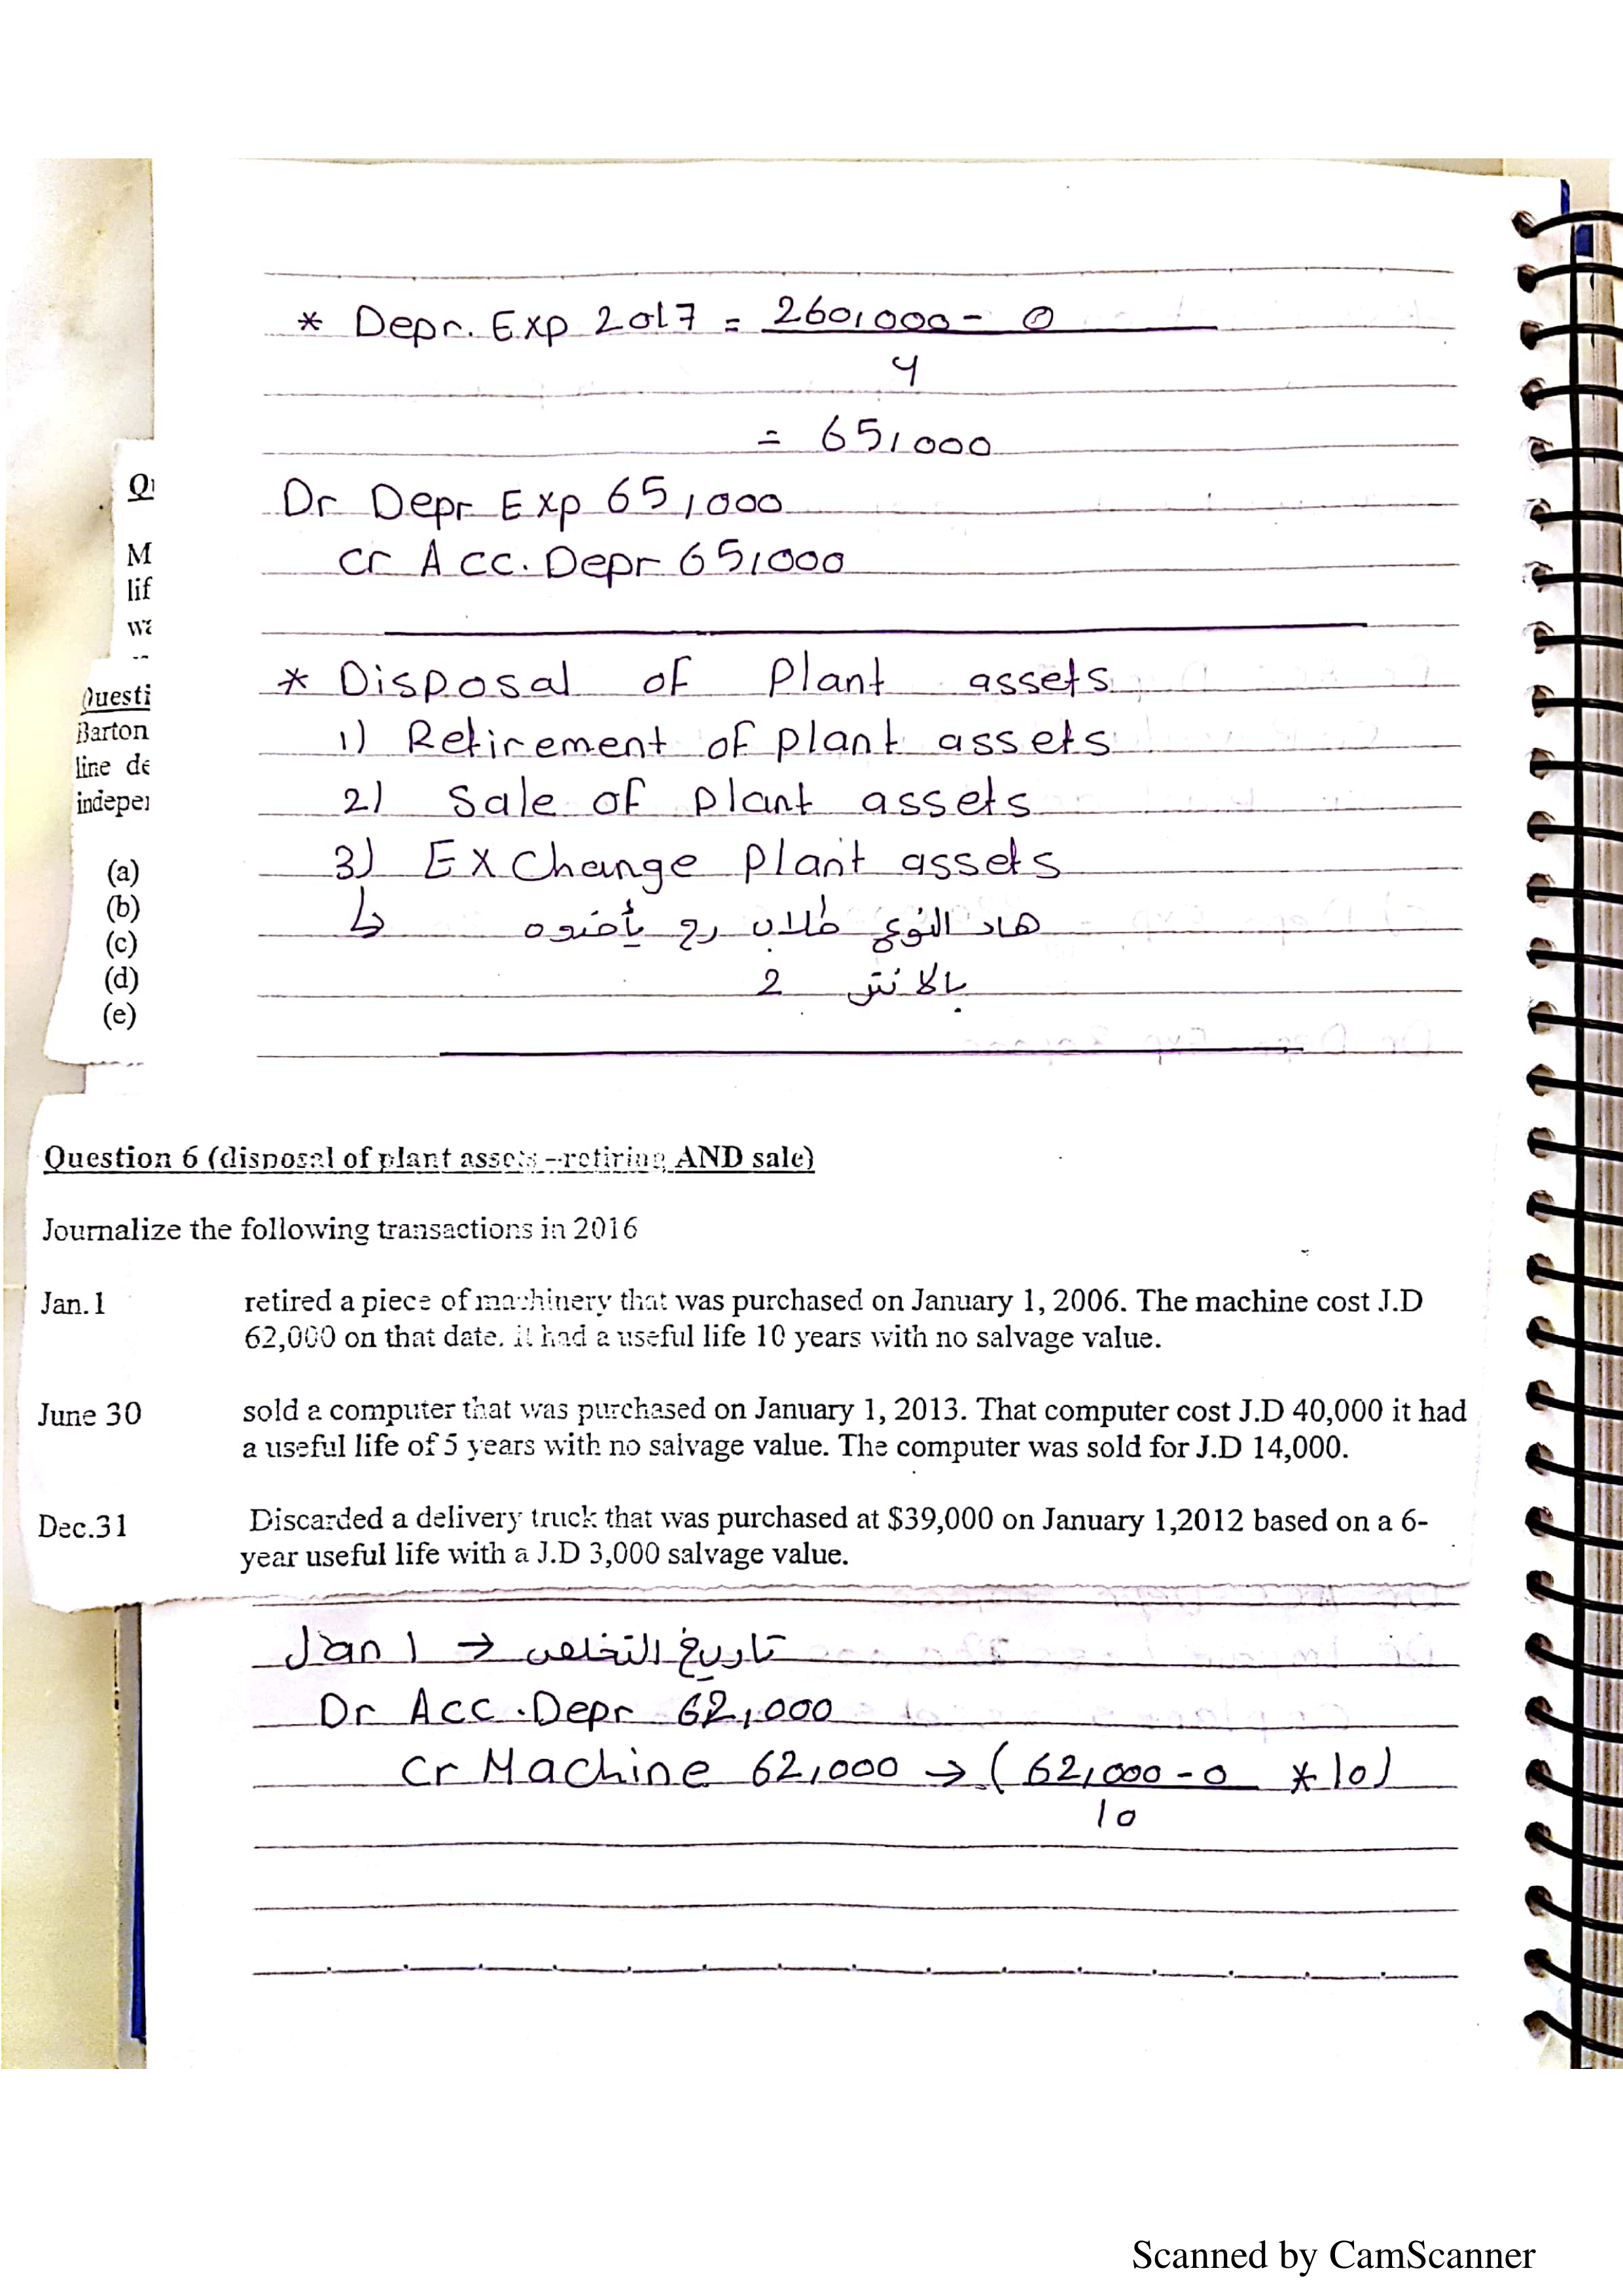 * Depr. Exp 2017 = 260,000 - 0
4
= 65,000
Dr Depr Exp 65,000
Cr Acc. Depr 65,000
* Disposal of Plant assets
1) Retirement of plant assets
2) Sale of plant assets
3) Exchange plant assets
هاد النوع طلاب رح يأخدوه
بالانتر 2
Q
M
lif
wa
Questi
Barton
line de
indepe
(a)
(b)
(c)
(d)
(e)
Question 6 (disposal of plant assets –retiring AND sale)
Journalize the following transactions in 2016
Jan.1 retired a piece of machinery that was purchased on January 1, 2006. The machine cost J.D
62,000 on that date. it had a useful life 10 years with no salvage value.
June 30 sold a computer that was purchased on January 1, 2013. That computer cost J.D 40,000 it had
a useful life of 5 years with no salvage value. The computer was sold for J.D 14,000.
Dec.31 Discarded a delivery truck that was purchased at $39,000 on January 1,2012 based on a 6-
year useful life with a J.D 3,000 salvage value.
Jan 1 → تاريخ التخلص
Dr Acc. Depr 62,000
Cr Machine 62,000 → (62,000 - 0 * 10)
10
Scanned by CamScanner